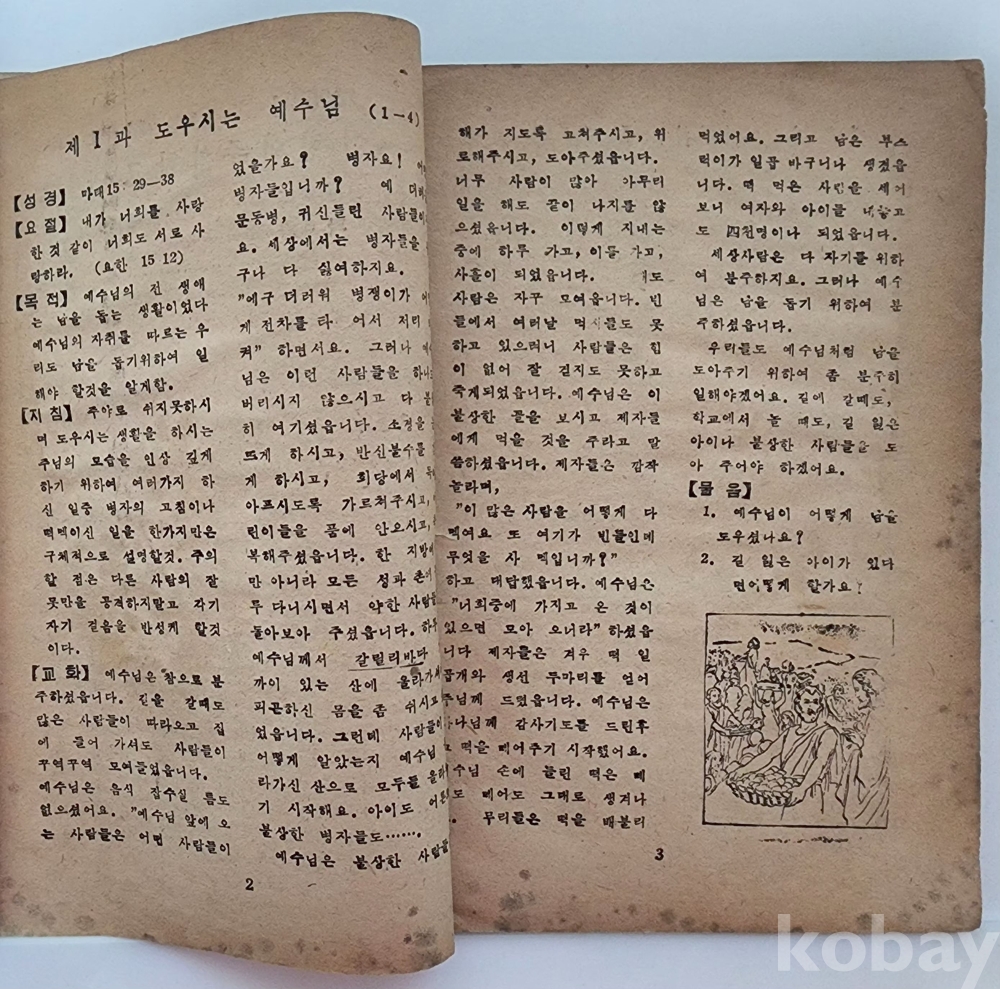 제 1 과 도우시는 예수님 (1-4)
【성 경】 마대15: 29—38
【요 절】 내가 너희를 사랑
한 것 같이 너희도 서로 사
랑하라. (요한 15 12)
【목 적】 예수님의 전 생애
는 남을 돕는 생활이었다
예수님의 자취를 따르는 우
리도 남을 돕기위하여 일
해야 할것을 알게함.
【지 침】 주야로 쉬지못하시
며 도우시는 생활을 하시는
주님의 모습을 인상 깊게
하기 위하여 여러가지 하
신 일중 병자의 고침이나
떡멕이신 일을 한가지만은
구체적으로 설명할것. 주의
할 점은 다른 사람의 잘
못만을 공격하지말고 각기
자기 걸음을 반성케 할것
이다.
【교 화】 예수님은 참으로 분
주하셨읍니다. 길을 갈때도
많은 사람들이 따라오고 집
에 들어 가셔도 사람들이
꾸역꾸역 모여들었읍니다.
예수님은 음식 잡수실 틈도
없으셨어요. "예수님 앞에 오
는 사람들은 어떤 사람들이
었을가요? 병자요!
병자들입니까? 예 더러
문둥병, 귀신들린 사람들이
요. 세상에서는 병자들을
구나 다 싫여하지요.
"에구 더러워 병쟁이가
게 전차를 타 어서 저리
켜" 하면서요. 그러나
님은 이런 사람들을 하나
버리시지 않으시고 다 불
히 여기셨읍니다. 소경을
뜨게 하시고, 반신불수를
게 하시고, 회당에서
아프시도록 가르처주시고,
린이들을 품에 안으시고,
복해주셨읍니다. 한 지방에
만 아니라 모든 성과 촌에
두 다니시면서 약한 사람을
돌아보아 주셨읍니다. 하루
예수님께서 갈릴리바다
까이 있는 산에 올라가셔
피곤하신 몸을 좀 쉬시고
었읍니다. 그런데 사람들이
어떻게 알았는지 예수님
라가신 산으로 모두들 올라
기 시작해요. 아이도 어른
불상한 병자들도…….
예수님은 불상한 사람들
2
해가 지도록 고쳐주시고, 위
로해주시고, 도아주셨읍니다.
너무 사람이 많아 아무리
일을 해도 끝이 나지를 않
으셨읍니다. 이렇게 지내는
중에 하루 가고, 이틀 가고,
사흘이 되었읍니다. 래도
사람은 자꾸 모여옵니다. 빈
들에서 여러날 먹지들도 못
하고 있으려니 사람들은 힘
이 없어 잘 걷지도 못하고
죽게되었읍니다. 예수님은 이
불상한 꼴을 보시고 제자들
에게 먹을 것을 주라고 말
씀하셨읍니다. 제자들은 깜작
놀라며,
"이 많은 사람을 어떻게 다
멕여요 또 여기가 빈들인데
무엇을 사 멕입니까?"
하고 대답했읍니다. 예수님은
"너희중에 가지고 온 것이
있으면 모아 오너라" 하셨읍
니다 제자들은 겨우 떡 일
곱개와 생선 두마리를 얻어
주님께 드렸읍니다. 예수님은
하나님께 감사기도를 드린후
그 떡을 떼어주기 시작했어요.
예수님 손에 들린 떡은 떼
도 떼어도 그대로 생겨나
. 무리들은 떡을 배불리
먹었어요. 그리고 남은 부스
럭이가 일곱 바구니나 생겼읍
니다. 떡 먹은 사람을 세어
보니 여자와 아이들 내놓고
도 四천명이나 되었읍니다.
세상사람은 다 자기를 위하
여 분주하지요. 그러나 예수
님은 남을 돕기 위하여 분
주하셨읍니다.
우리들도 예수님처럼 남을
도아주기 위하여 좀 분주히
일해야겠어요. 길에 갈때도,
학교에서 놀 때도, 길 잃은
아이나 불상한 사람들을 도
아 주어야 하겠어요.
【물 음】
1. 예수님이 어떻게 남을
도우셨나요?
2. 길 잃은 아이가 있다
면어떻게 할가요?
3
kobay